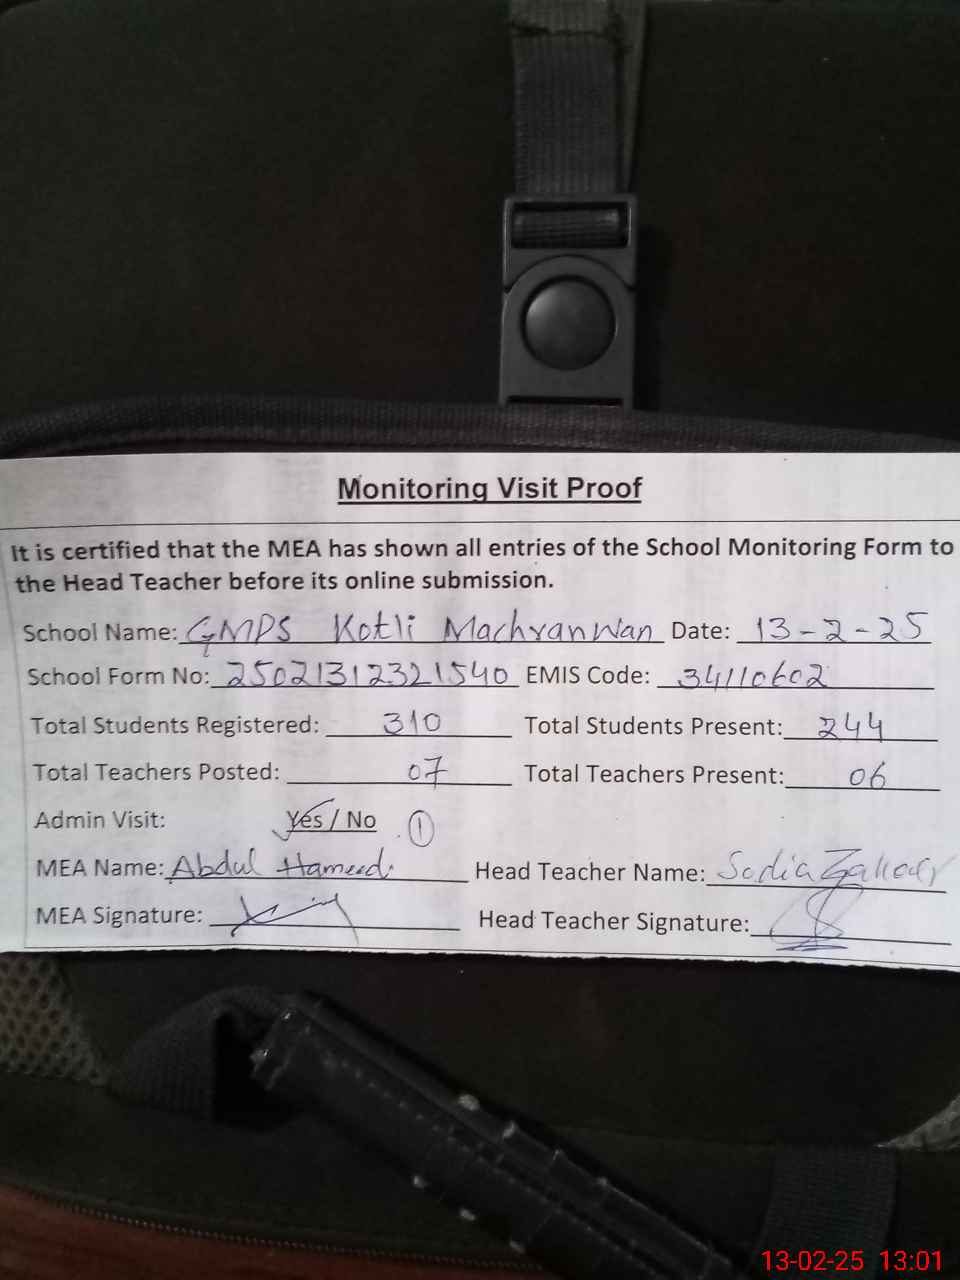 Monitoring Visit Proof
It is certified that the MEA has shown all entries of the School Monitoring Form to
the Head Teacher before its online submission.
School Name: GMPS Kotli Machranwan Date: 13-2-25
School Form No: 25021312321540 EMIS Code: 34110602
Total Students Registered: 310 Total Students Present: 244
Total Teachers Posted: 07 Total Teachers Present: 06
Admin Visit: Yes / No 1
MEA Name: Abdul Hameed Head Teacher Name: Sadia
MEA Signature: Head Teacher Signature:
13-02-25 13:01